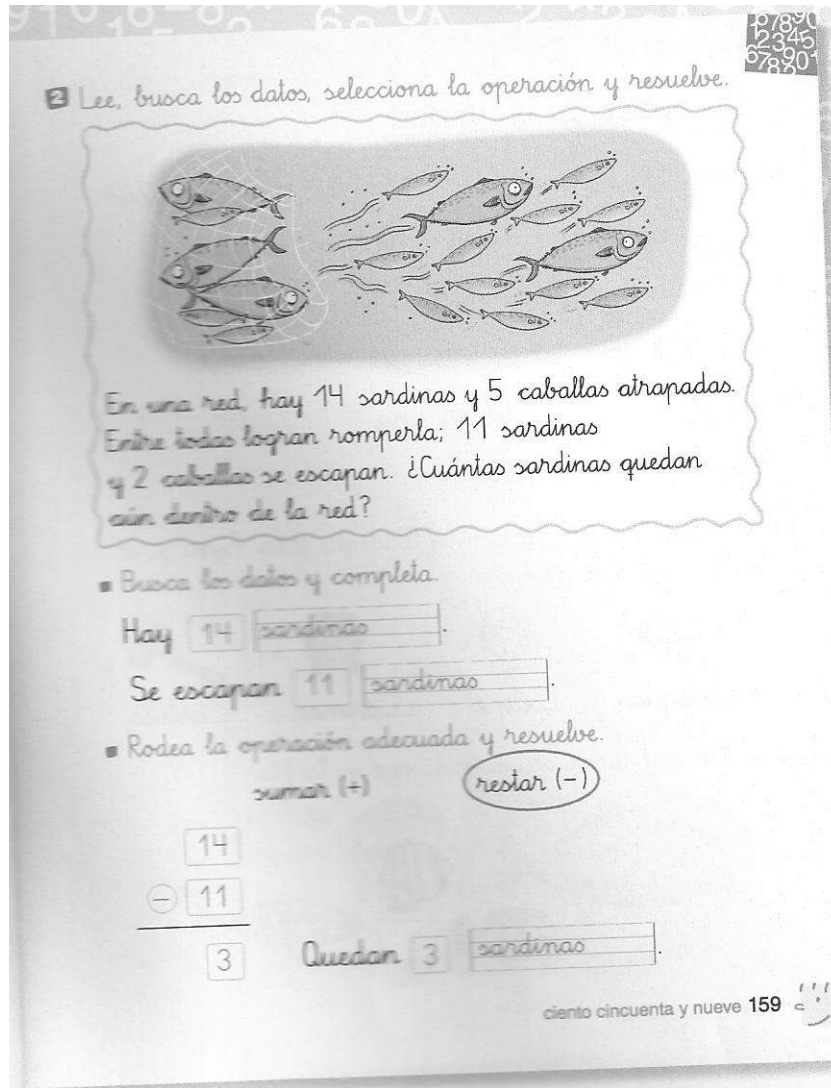 2 Lee, busca los datos, selecciona la operación y resuelve.
En una red, hay 14 sardinas y 5 caballas atrapadas.
Entre todas logran romperla; 11 sardinas
y 2 caballas se escapan. ¿Cuántas sardinas quedan
aún dentro de la red?
Busca los datos y completa.
Hay 14 sardinas.
Se escapan 11 sardinas.
Rodea la operación adecuada y resuelve.
sumar (+) restar (-)
14
- 11
3 Quedan 3 sardinas.
ciento cincuenta y nueve 159